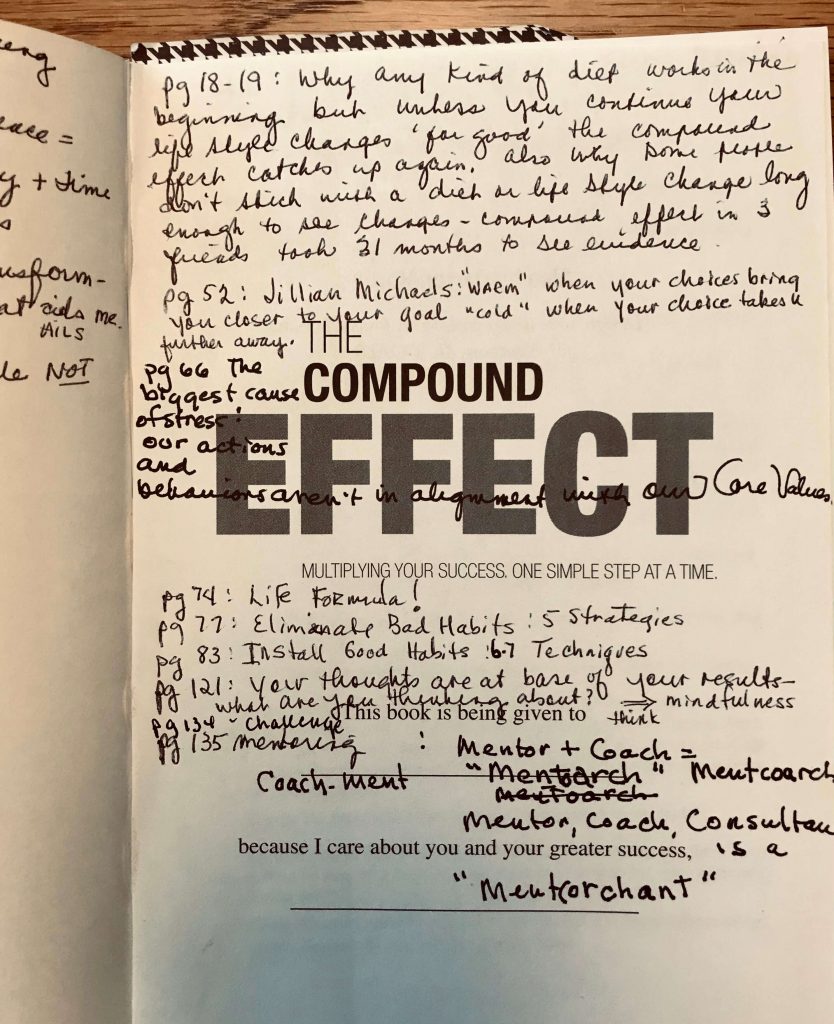 eace =
y + time
nsform-
at aids me.
AILS
le NOT
pg 18-19: Why any kind of diet works in the
beginning but unless you continue your
life style changes 'for good' the compound
effect catches up again. Also why some people
don't stick with a diet or life style change long
enough to see changes - compound effect in 3
friends took 31 months to see evidence.
pg 52: Jillian Michaels: "warm" when your choices bring
you closer to your goal "cold" when your choice takes u
further away.
THE
COMPOUND
EFFECT
pg 66 The
biggest cause
of stress:
our actions
and
behaviors aren't in alignment with our Core Values.
MULTIPLYING YOUR SUCCESS. ONE SIMPLE STEP AT A TIME.
pg 74: Life Formula!
pg 77: Eliminate Bad Habits: 5 Strategies
pg 83: Install Good Habits: 6-7 Techniques
pg 121: Your thoughts are at base of your results-
what are you thinking about? ⇒ mindfulness
think
pg 134 - Challenge
This book is being given to
pg 135 memoring : Mentor + Coach =
Coach-ment "Mentoarch" Mentcoarch
mentoarch
Mentor, Coach, Consultan
because I care about you and your greater success, is a
"Mentorchant"